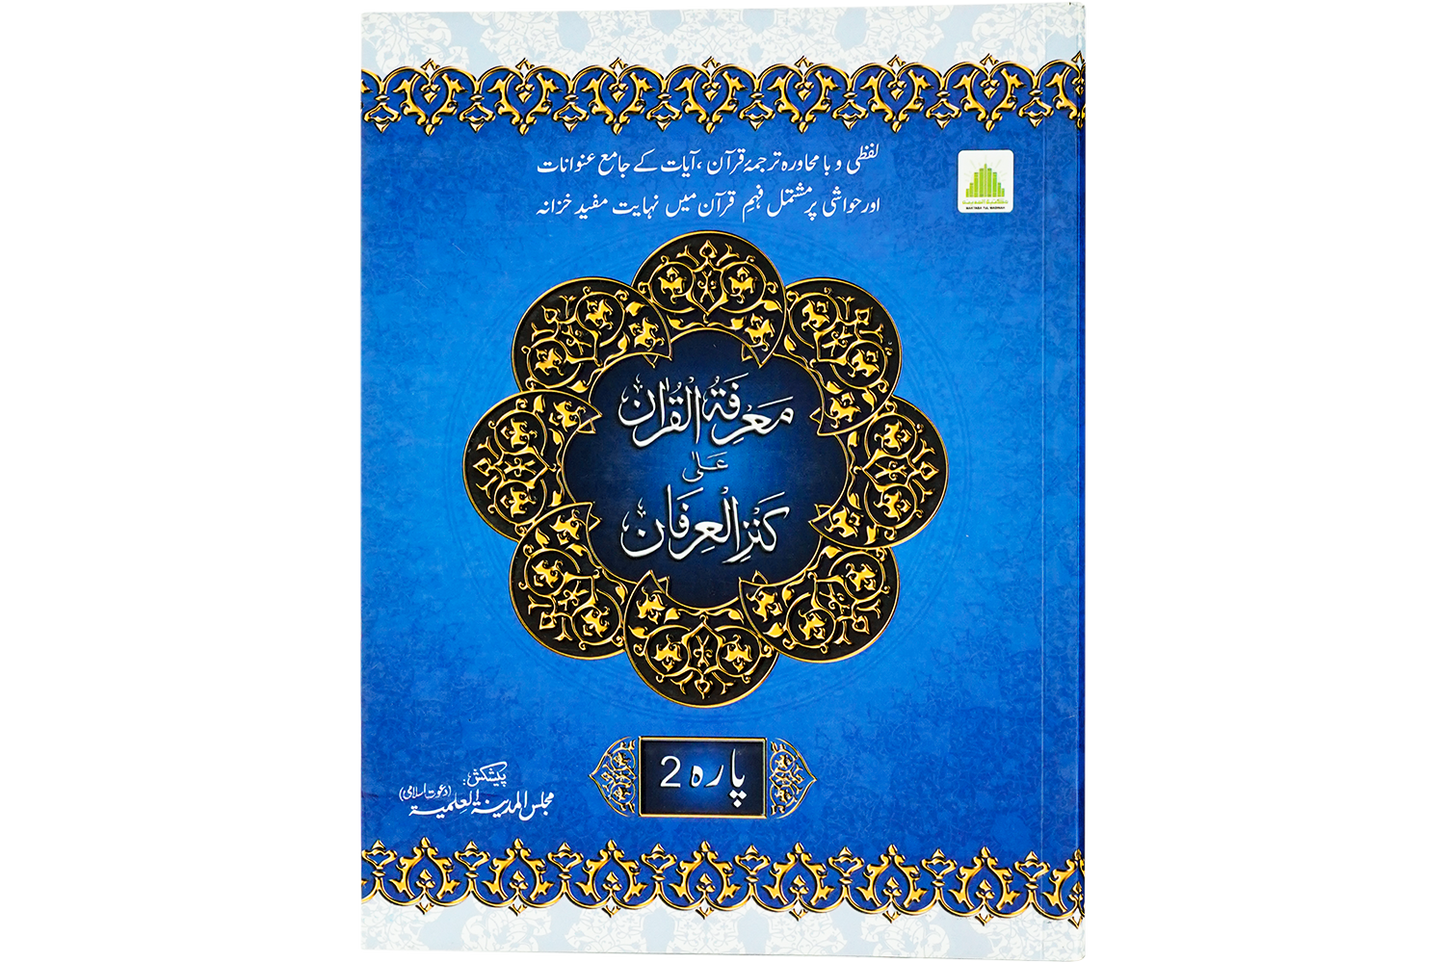 لفظی و با محاورہ ترجمۂ قرآن، آیات کے جامع عنوانات
اور حواشی پر مشتمل فہمِ قرآن میں نہایت مفید خزانہ
مَعْرِفَۃُ الْقُرْاٰن
عَلٰی
کَنْزِالْعِرْفَان
پارہ 2
پیشکش:
مجلس المدینۃ العلمیۃ (دعوتِ اسلامی)
MAKTABA TUL MADINAH